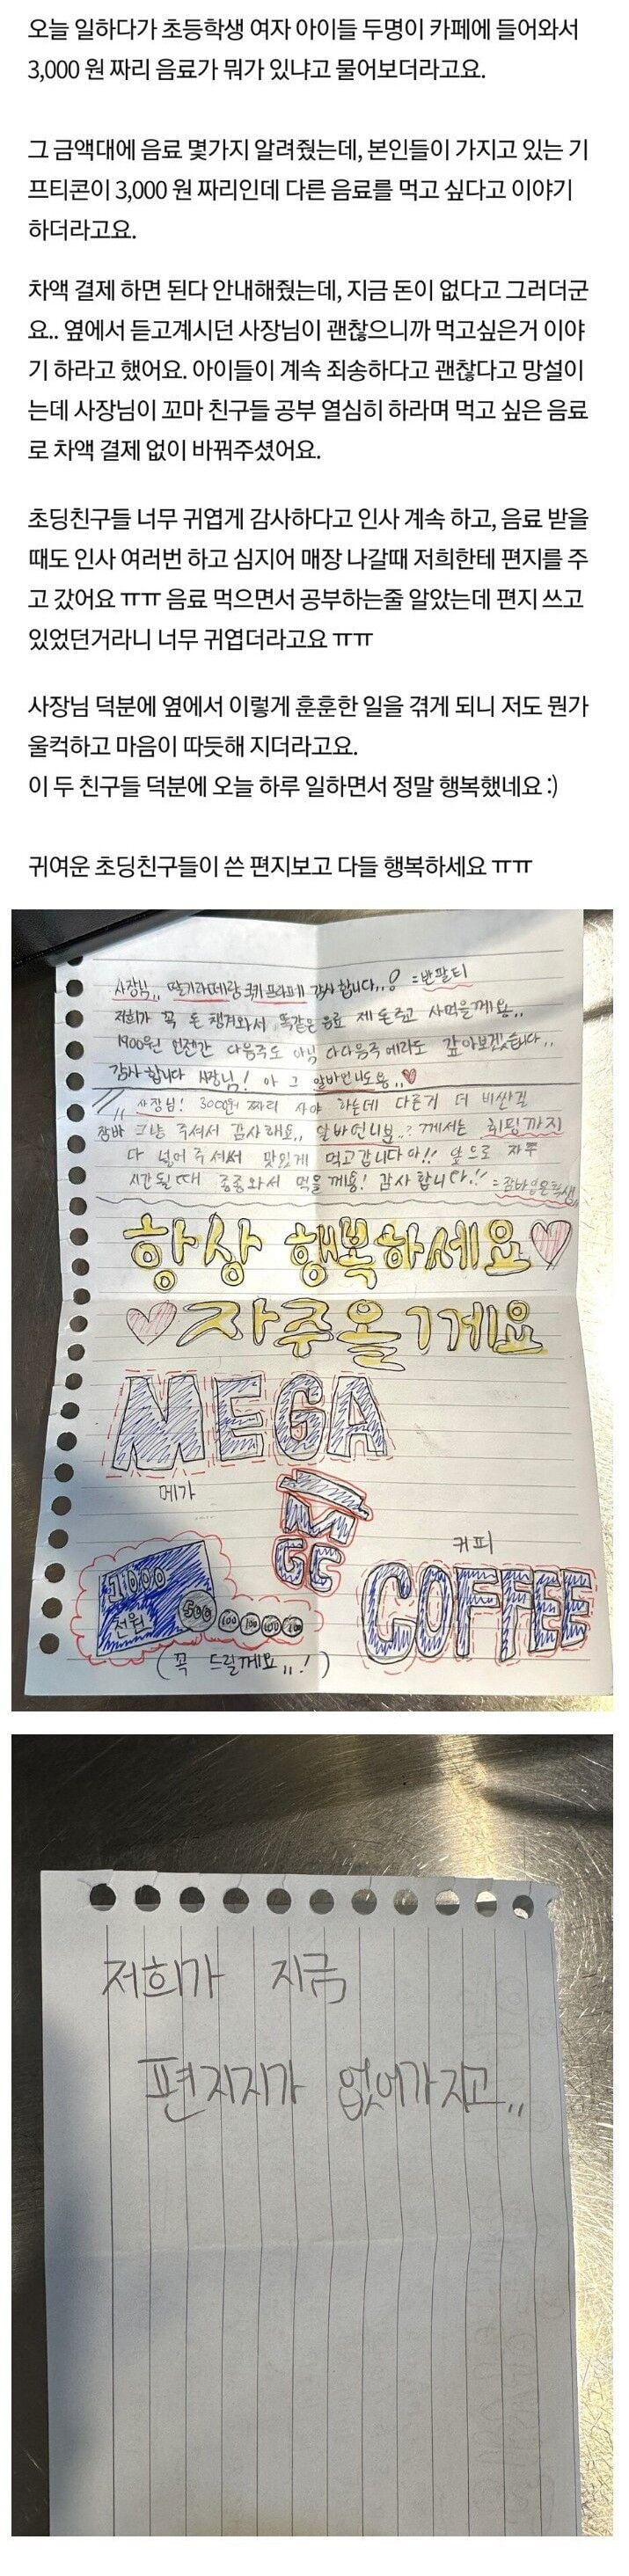 오늘 일하다가 초등학생 여자 아이들 두명이 카페에 들어와서
3,000 원 짜리 음료가 뭐가 있냐고 물어보더라고요.
그 금액대에 음료 몇가지 알려줬는데, 본인들이 가지고 있는 기
프티콘이 3,000 원 짜리인데 다른 음료를 먹고 싶다고 이야기
하더라고요.
차액 결제 하면 된다 안내해줬는데, 지금 돈이 없다고 그러더군
요.. 옆에서 듣고계시던 사장님이 괜찮으니까 먹고싶은거 이야
기 하라고 했어요. 아이들이 계속 죄송하다고 괜찮다고 망설이
는데 사장님이 꼬마 친구들 공부 열심히 하라며 먹고 싶은 음료
로 차액 결제 없이 바꿔주셨어요.
초딩친구들 너무 귀엽게 감사하다고 인사 계속 하고, 음료 받을
때도 인사 여러번 하고 심지어 매장 나갈때 저희한테 편지를 주
고 갔어요 ㅠㅠ 음료 먹으면서 공부하는줄 알았는데 편지 쓰고
있었던거라니 너무 귀엽더라고요 ㅠㅠ
사장님 덕분에 옆에서 이렇게 훈훈한 일을 겪게 되니 저도 뭔가
울컥하고 마음이 따듯해 지더라고요.
이 두 친구들 덕분에 오늘 하루 일하면서 정말 행복했네요 :)
귀여운 초딩친구들이 쓴 편지보고 다들 행복하세요 ㅠㅠ
사장님,, 딸기라떼랑 쿠키프라페 감사합니다..! =반팔티
저희가 꼭 돈 챙겨와서 똑같은 음료 제 돈주고 사먹을께요..
1900원 언젠간 다음주도 아님 다다음주 에라도 갚아보겠습니다..
감사합니다 사장님! 아 그 알바언니도용..♥
사장님! 3000원 짜리 사야 하는데 다른거 더 비싼걸
그냥 주셔서 감사해요.. 알바언니분..? 께서는 휘핑까지
다 넣어주셔써 맛있게 먹고갑니다아!! 앞으로 자주
시간될때 종종와서 먹을께용! 감사합니다!! =잠바입은학생
항상 행복하세요♡
♡자주올게요
MEGA
메가
M
GC
커피
COFFEE
1000
천원
500
100 100 100 100
(꼭 드릴께요..!)
저희가 지금
편지지가 없어가지고..